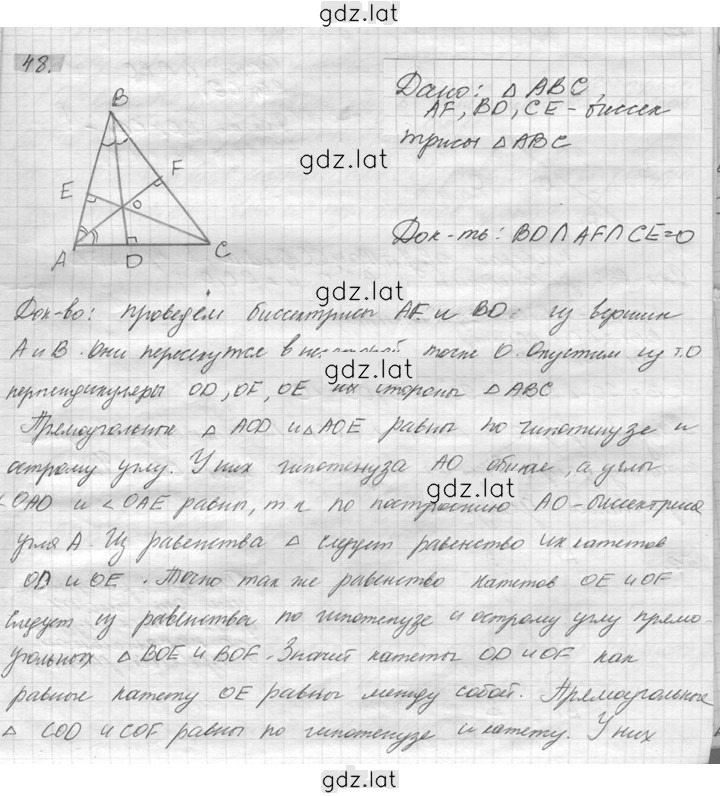 gdz.lat
48.
B
F
E
O
A
D
C
Дано: △ ABC,
AF, BD, CE - биссек
трисы △ ABC
gdz.lat
Док-ть: BD∩AF∩CE=O
gdz.lat
Док-во: проведём биссектрисы AF и BD из вершин
A и B. Они пересекутся в точке O. Опустим из т. O
gdz.lat
перпендикуляры OD, OF, OE на стороны △ ABC
Прямоугольные △ AOD и △ AOE равны по гипотенузе и
острому углу. У них гипотенуза AO общая, а углы
gdz.lat
∠OAD и ∠OAE равны, т.к по построению AO - биссектриса
угла A. Из равенства △ следует равенство их катетов
OD и OE. Точно так же равенство катетов OE и OF
следует из равенства по гипотенузе и острому углу прямо-
угольных △ BOE и BOF. Значит катеты OD и OF как
равные катету OE равны между собой. Прямоугольные
△ COD и COF равны по гипотенузе и катету. У них
gdz.lat